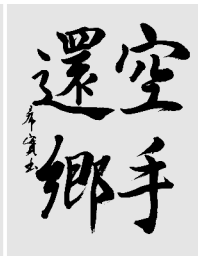 空手
還鄉